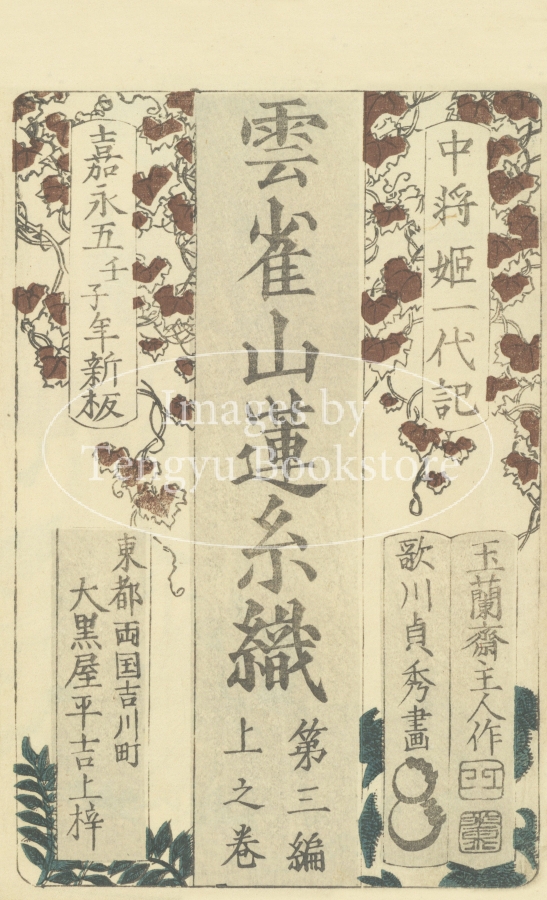 中将姫一代記
玉蘭齋主人作
歌川貞秀畫
雲雀山蓮糸織
第三編
上之巻
嘉永五壬子年新板
東都両国吉川町
大黒屋平吉上梓
Images by
Tengyu Bookstore